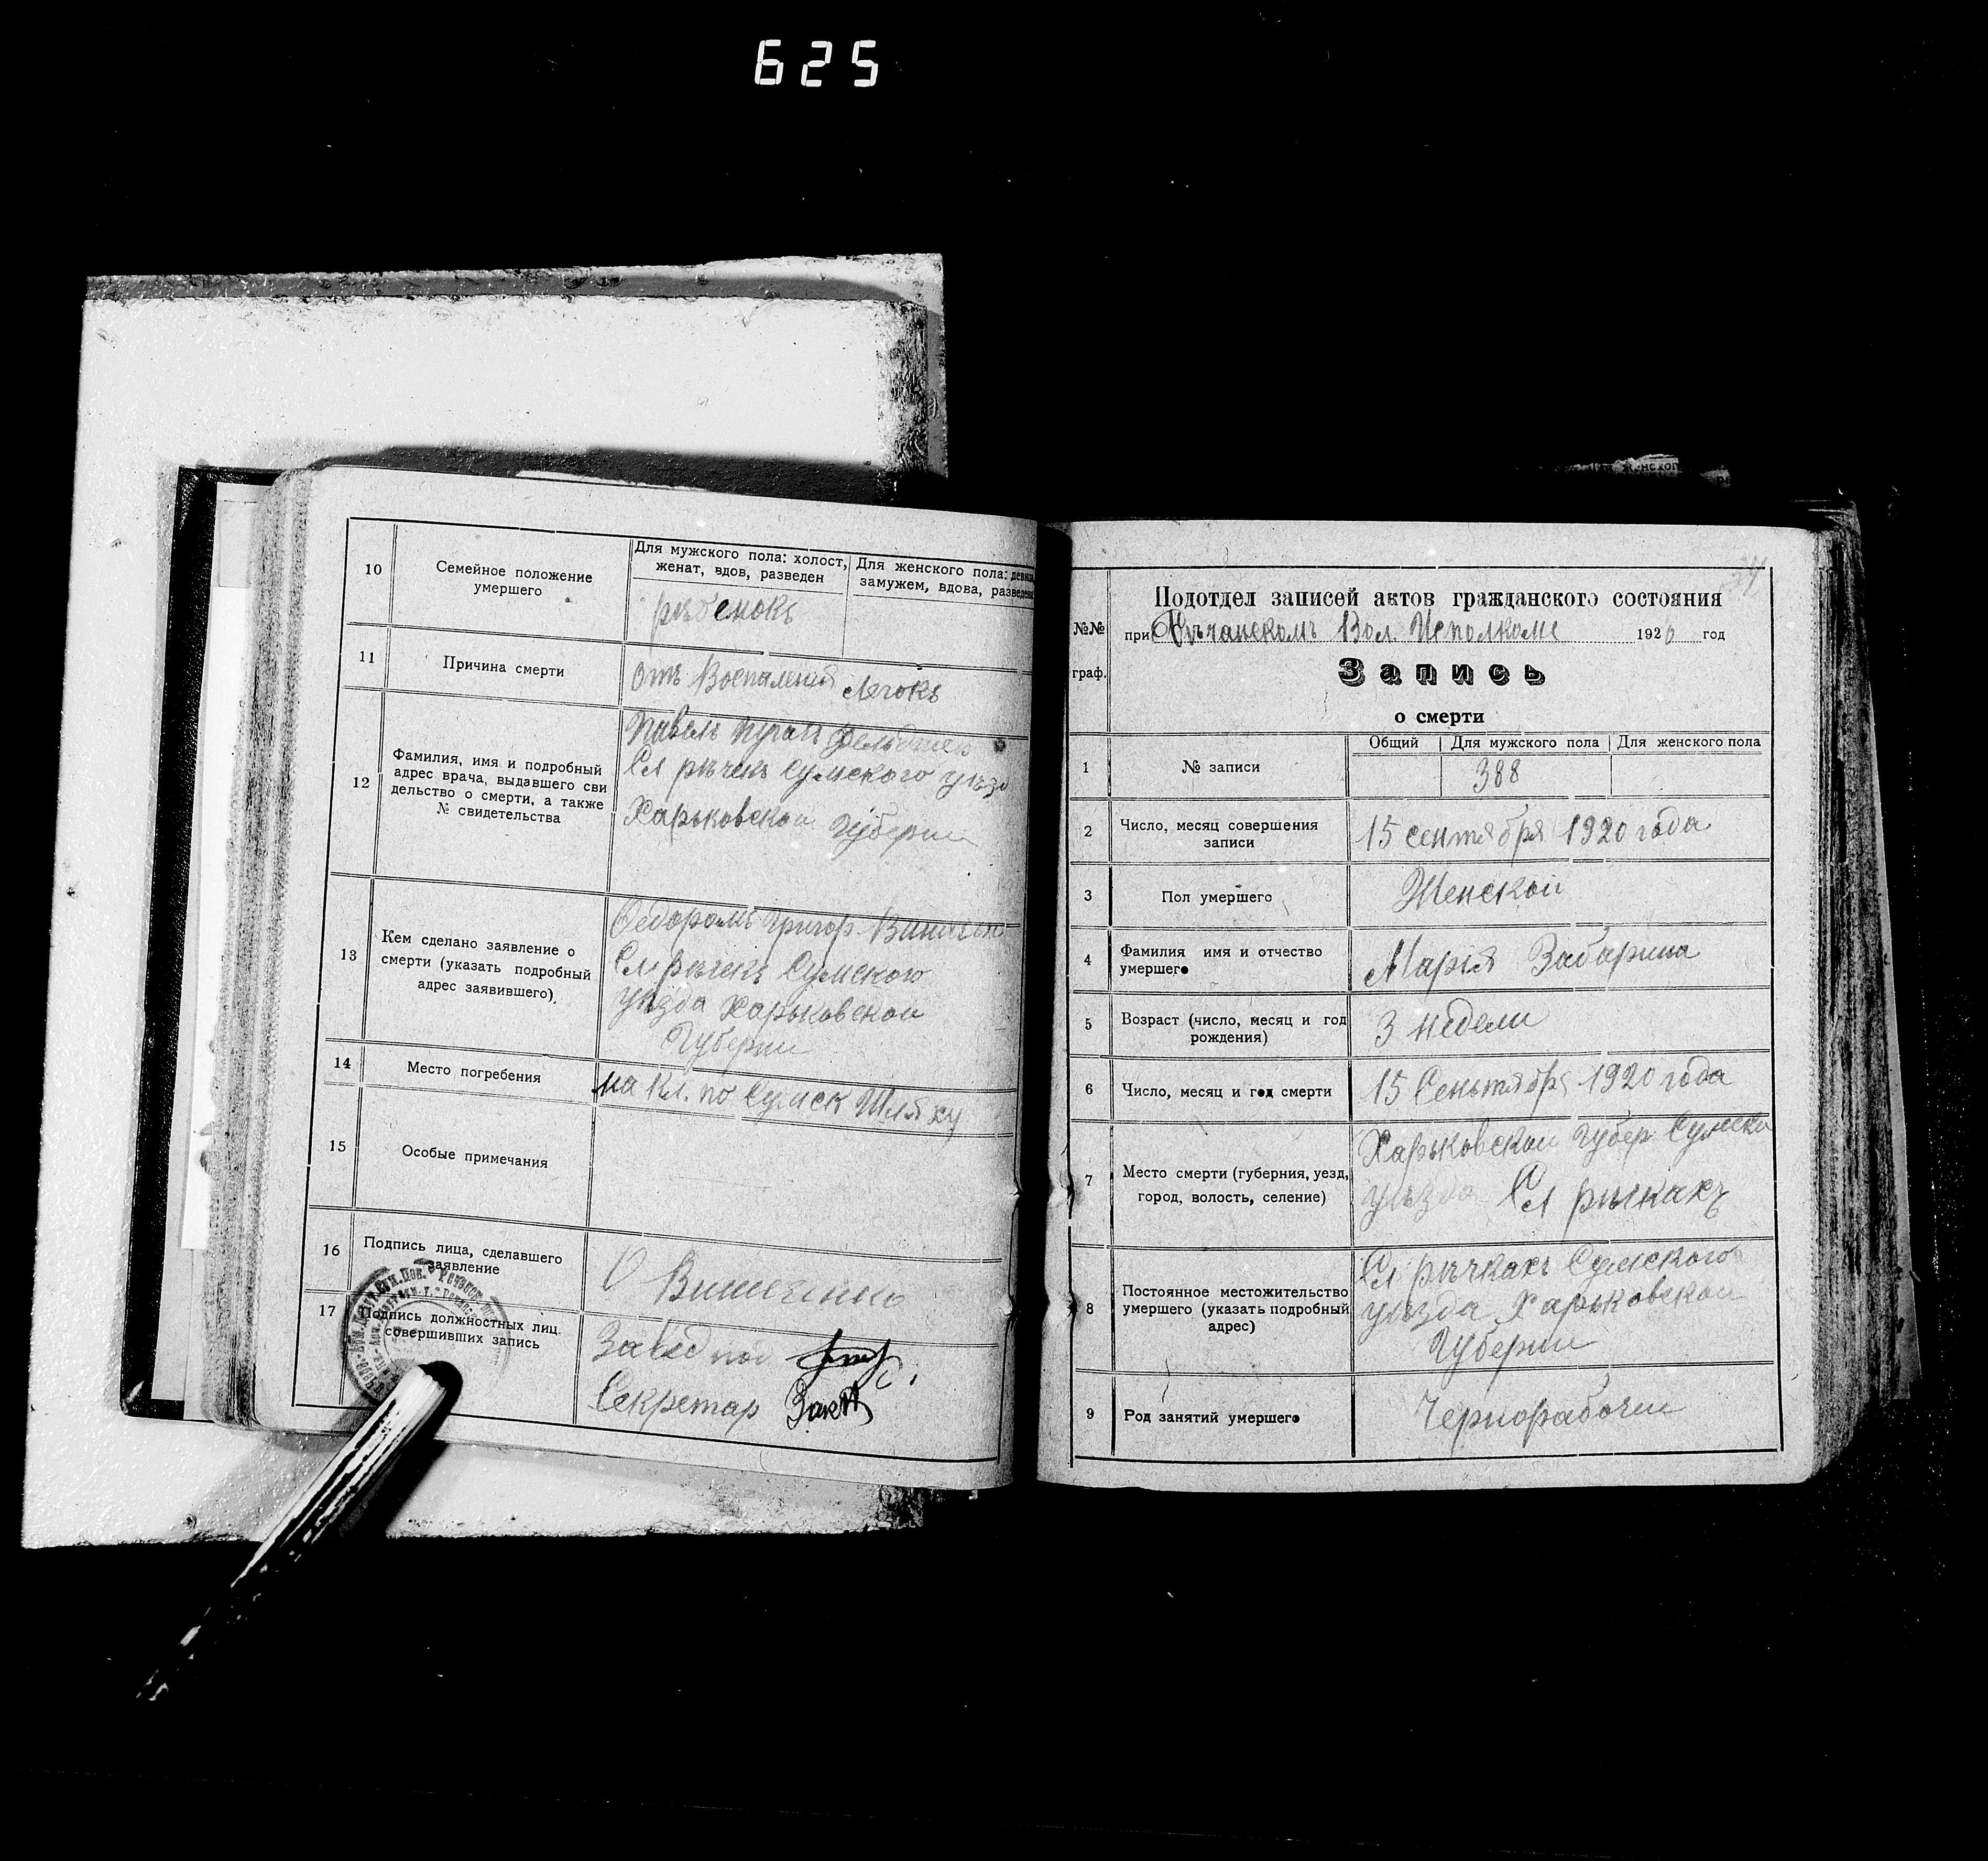 625
10
Семейное положение
умершего
Для мужского пола: холост,
женат, вдов, разведен
Для женского пола: девица,
замужем, вдова, разведена
рѣбенокъ
11
Причина смерти
отъ Воспаления Легокъ
12
Фамилия, имя и подробный
адрес врача, выдавшего сви
дельство о смерти, а также
№ свидетельства
Павелъ
Сл рѣчекъ Сумского уѣзд
Харьковской Губерни
13
Кем сделано заявление о
смерти (указать подробный
адрес заявившего).
Федоромъ Григор
Сл рѣчекъ Сумского
уѣзда Харьковской
Губерни
14
Место погребения
на Кл. по Сумск Шляху
15
Особые примечания
16
Подпись лица, сделавшего
заявление
17
Подпись должностных лиц,
совершивших запись
Завед
Секретар
34
№№
граф.
Подотдел записей актов гражданского состояния
при Рѣчанскомъ Вол. Исполкоме 1920 год
Запись
о смерти
1
№ записи
Общий
Для мужского пола
Для женского пола
388
2
Число, месяц совершения
записи
15 сентября 1920 года
3
Пол умершего
Женской
4
Фамилия имя и отчество
умершего
Марія Забарина
5
Возраст (число, месяц и год
рождения)
3 недели
6
Число, месяц и год смерти
15 Сеньтября 1920 года
7
Место смерти (губерния, уезд,
город, волость, селение)
Харьковской Губер Сумско
уѣзда Сл рѣчкахъ
8
Постоянное местожительство
умершего (указать подробный
адрес)
Сл рѣчкахъ Сумского
уѣзда Харьковской
Губерни
9
Род занятий умершего
Чернорабочи